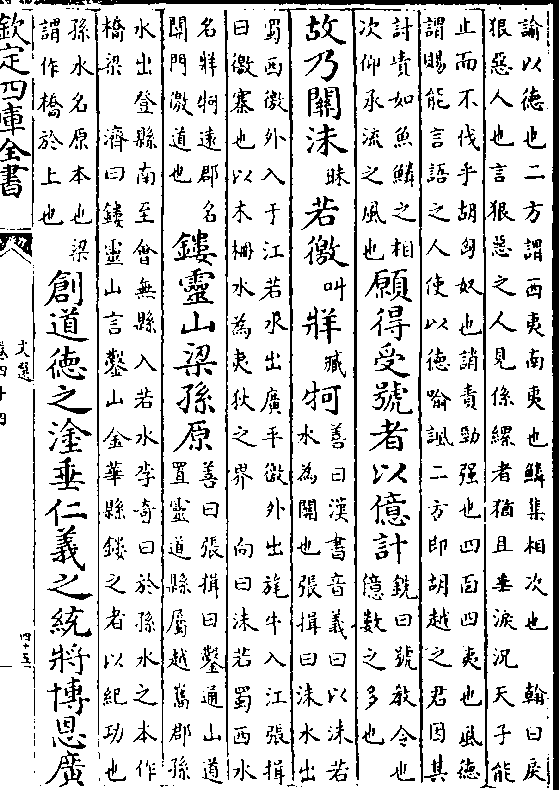 諭以德也二方謂西夷南夷也鱗集相次也 翰曰戾
狠惡人也言狠惡之人見係縲者猶且垂淚況天子能
止而不伐乎胡匈奴也誚責勁强也四面四夷也風德
謂賜能言語之人使以德喻諷二方即胡越之君因其
討責如魚鱗之相
次仰承流之風也
願得受號者以億計
銑曰號教令也
億數之多也
故乃關沬 昧 若徼 叫 牂 臧 牁
善曰漢書音義曰以沬若
水為關也張揖曰沬水出
蜀西徼外入于江若水出廣平徼外出旄牛入江張揖
曰徼塞也以木柵水為夷狄之界 向曰沬若蜀西水
名牂牁遠郡名
關門徼道也
鏤靈山梁孫原
善曰張揖曰鑿通山道
置靈道縣屬越嶲郡孫
水出登縣南至會無縣入若水李奇曰於孫水之本作
橋梁 濟曰鏤靈山言鑿山金華縣鏤之者以紀功也
孫水名原本也梁
謂作橋於上也
創道德之塗垂仁義之統將博恩廣
欽定四庫全書
文選
卷四十四
四十五